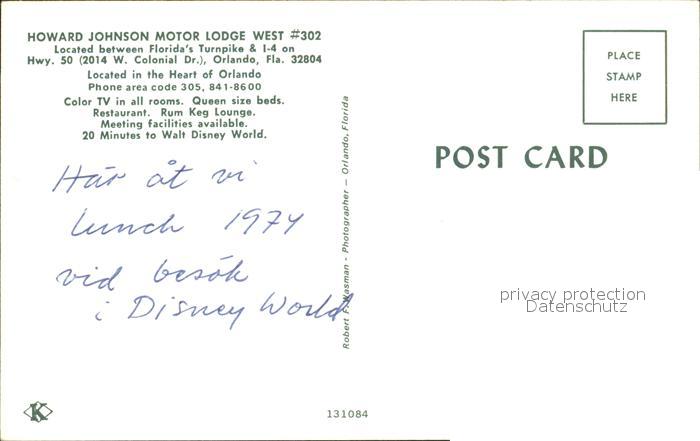 HOWARD JOHNSON MOTOR LODGE WEST #302
Located between Florida's Turnpike & I-4 on
Hwy. 50 (2014 W. Colonial Dr.), Orlando, Fla. 32804
Located in the Heart of Orlando
Phone area code 305, 841-8600
Color TV in all rooms. Queen size beds.
Restaurant. Rum Keg Lounge.
Meeting facilities available.
20 Minutes to Walt Disney World.
Här åt vi
lunch 1974
vid besök
i Disney World
Robert F. Wasman - Photographer - Orlando, Florida
PLACE
STAMP
HERE
POST CARD
privacy protection
Datenschutz
K
131084